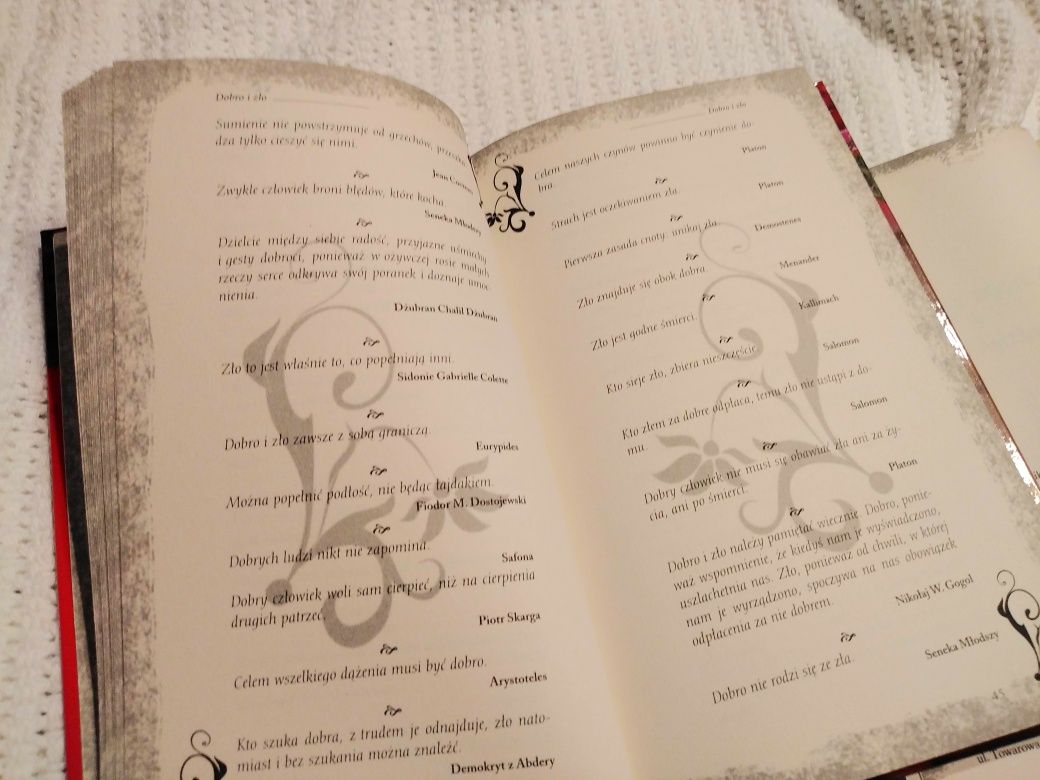 Dobro i zło
Sumienie nie powstrzymuje od grzechów, przeszka-
dza tylko cieszyć się nimi.
Jean
Zwykle człowiek broni błędów, które kocha.
Seneka Młodszy
Dzielcie między siebie radość, przyjazne uśmiechy
i gesty dobroci, ponieważ w ożywczej rosie małych
rzeczy serce odkrywa swój poranek i doznaje umoc-
nienia.
Dżubran Chalil Dżubran
Zło to jest właśnie to, co popełniają inni.
Sidonie Gabrielle Colette
Dobro i zło zawsze z sobą graniczą.
Eurypides
Można popełnić podłość, nie będąc łajdakiem.
Fiodor M. Dostojewski
Dobrych ludzi nikt nie zapomina.
Safona
Dobry człowiek woli sam cierpieć, niż na cierpienia
drugich patrzeć.
Piotr Skarga
Celem wszelkiego dążenia musi być dobro.
Arystoteles
Kto szuka dobra, z trudem je odnajduje, zło nato-
miast i bez szukania można znaleźć.
Demokryt z Abdery
Dobro i zło
Celem naszych czynów powinno być czynienie do-
bra.
Platon
Strach jest oczekiwaniem zła.
Platon
Pierwsza zasada cnoty: unikaj zła.
Demostenes
Zło znajduje się obok dobra.
Menander
Zło jest godne śmierci.
Kallimach
Kto sieje zło, zbiera nieszczęście.
Salomon
Kto złem za dobre odpłaca, temu zło nie ustąpi z do-
mu.
Salomon
Dobry człowiek nie musi się obawiać zła ani za ży-
cia, ani po śmierci.
Platon
Dobro i zło należy pamiętać wiecznie. Dobro, ponie-
waż wspomnienie, że kiedyś nam je wyświadczono,
uszlachetnia nas. Zło, ponieważ od chwili, w której
nam je wyrządzono, spoczywa na nas obowiązek
odpłacenia za nie dobrem.
Nikołaj W. Gogol
Dobro nie rodzi się ze zła.
Seneka Młodszy
45
ul. Towarowa